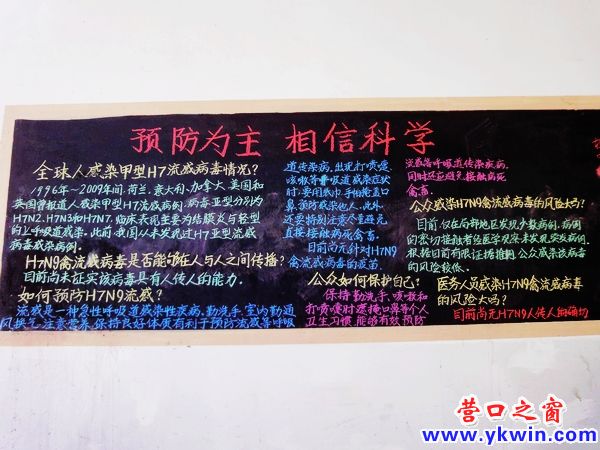 预防为主 相信科学
全球人感染甲型H7流感病毒情况?
1996年～2009年间,荷兰、意大利、加拿大、美国和
英国曾报道人感染甲型H7流感病例,病毒亚型分别为
H7N2、H7N3和H7N7,临床表现主要为结膜炎与轻型
的上呼吸道感染,此前我国人未发现过H7亚型流感
病毒感染病例。
H7N9禽流感病毒是否能够在人与人之间传播?
目前尚未证实该病毒具有人传人的能力。
如何预防H7N9流感?
流感是一种急性呼吸道感染性疾病,勤洗手、室内勤通
风换气、注意营养、保持良好体质有利于预防流感等呼吸
道传染病,出现打喷嚏、
咳嗽等呼吸道感染症状
时,要用纸巾、手帕掩盖口
鼻,预防感染他人,此外,
还要特别注意尽量避免
直接接触病死禽畜。
目前尚无针对H7N9
禽流感病毒的疫苗。
公众如何保护自己?
保持勤洗手、咳嗽和
打喷嚏时遮掩口鼻等个人
卫生习惯,能够有效预防
流感等呼吸道传染疾病,
同时还应避免接触病死
禽畜。
公众感染H7N9禽流感病毒的风险大吗?
目前仅在局部地区发现少数病例,病
例的密切接触者经医学观察未发现续发病例,
根据目前有限证据推测,公众感染该病毒
的风险较低。
医务人员感染H7N9禽流感病毒
的风险大吗?
目前尚无H7N9人传人的确切
营口之窗
www.ykwin.com